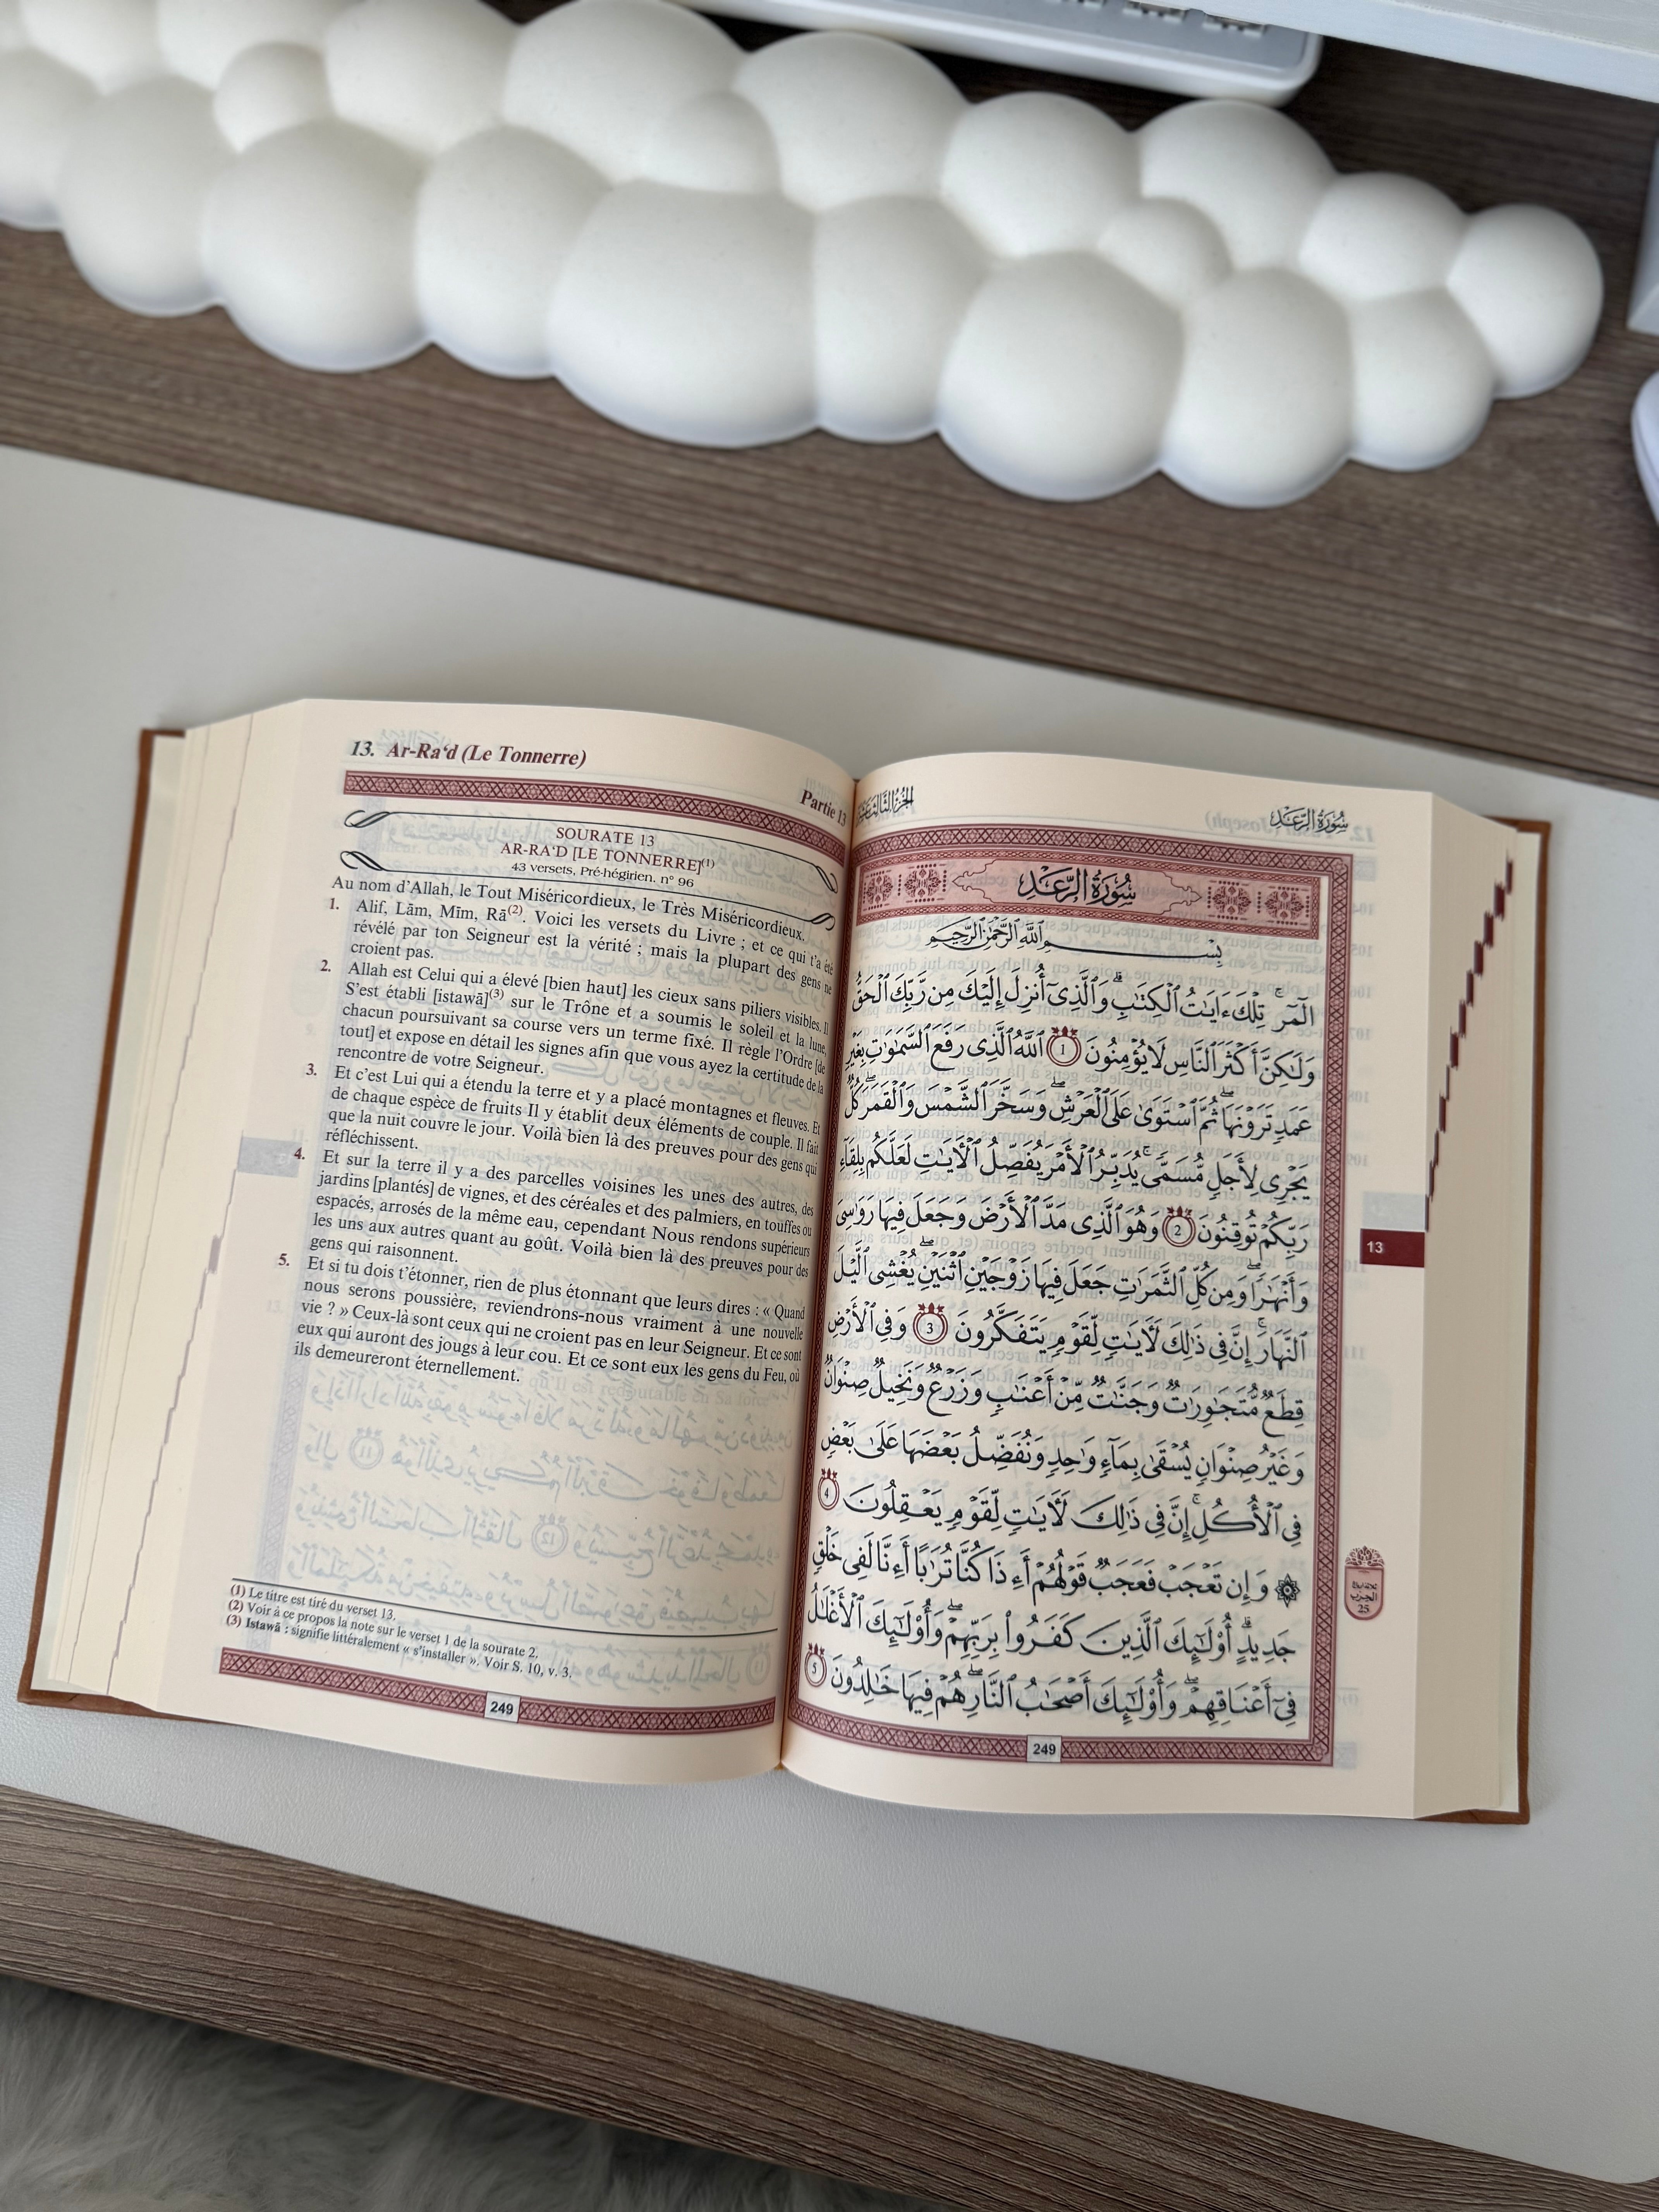 13. Ar-Ra‘d (Le Tonnerre)
Partie 13
SOURATE 13
AR-RA‘D [LE TONNERRE](1)
43 versets, Pré-hégirien. n° 96
Au nom d’Allah, le Tout Miséricordieux, le Très Miséricordieux.
1. Alif, Lām, Mīm, Rā(2). Voici les versets du Livre ; et ce qui t’a été
révélé par ton Seigneur est la vérité ; mais la plupart des gens ne
croient pas.
2. Allah est Celui qui a élevé [bien haut] les cieux sans piliers visibles. Il
S’est établi [istawā](3) sur le Trône et a soumis le soleil et la lune,
chacun poursuivant sa course vers un terme fixé. Il règle l’Ordre [de
tout] et expose en détail les signes afin que vous ayez la certitude de la
rencontre de votre Seigneur.
3. Et c’est Lui qui a étendu la terre et y a placé montagnes et fleuves. Et
de chaque espèce de fruits Il y établit deux éléments de couple. Il fait
que la nuit couvre le jour. Voilà bien là des preuves pour des gens qui
réfléchissent.
4. Et sur la terre il y a des parcelles voisines les unes des autres, des
jardins [plantés] de vignes, et des céréales et des palmiers, en touffes ou
espacés, arrosés de la même eau, cependant Nous rendons supérieurs
les uns aux autres quant au goût. Voilà bien là des preuves pour des
gens qui raisonnent.
5. Et si tu dois t’étonner, rien de plus étonnant que leurs dires : « Quand
nous serons poussière, reviendrons-nous vraiment à une nouvelle
vie ? » Ceux-là sont ceux qui ne croient pas en leur Seigneur. Et ce sont
eux qui auront des jougs à leur cou. Et ce sont eux les gens du Feu, où
ils demeureront éternellement.
(1) Le titre est tiré du verset 13.
(2) Voir à ce propos la note sur le verset 1 de la sourate 2.
(3) Istawā : signifie littéralement « s’installer ». Voir S. 10, v. 3.
249
سُورَةُ الرَّعْدِ
الجُزْءُ الثَّالِثَ عَشَرَ
سُورَةُ الرَّعْدِ
بِسْمِ ٱللَّهِ ٱلرَّحْمَٰنِ ٱلرَّحِيمِ
الٓمٓرۚ تِلْكَ ءَايَٰتُ ٱلْكِتَٰبِۗ وَٱلَّذِىٓ أُنزِلَ إِلَيْكَ مِن رَّبِّكَ ٱلْحَقُّ
وَلَٰكِنَّ أَكْثَرَ ٱلنَّاسِ لَا يُؤْمِنُونَ 1 ٱللَّهُ ٱلَّذِى رَفَعَ ٱلسَّمَٰوَٰتِ بِغَيْرِ
عَمَدٍ تَرَوْنَهَاۖ ثُمَّ ٱسْتَوَىٰ عَلَى ٱلْعَرْشِۖ وَسَخَّرَ ٱلشَّمْسَ وَٱلْقَمَرَۖ كُلٌّ
يَجْرِى لِأَجَلٍ مُّسَمًّىۚ يُدَبِّرُ ٱلْأَمْرَ يُفَصِّلُ ٱلْءَايَٰتِ لَعَلَّكُم بِلِقَآءِ
رَبِّكُمْ تُوقِنُونَ 2 وَهُوَ ٱلَّذِى مَدَّ ٱلْأَرْضَ وَجَعَلَ فِيهَا رَوَٰسِىَ
وَأَنْهَٰرًاۖ وَمِن كُلِّ ٱلثَّمَرَٰتِ جَعَلَ فِيهَا زَوْجَيْنِ ٱثْنَيْنِۖ يُغْشِى ٱلَّيْلَ
ٱلنَّهَارَۚ إِنَّ فِى ذَٰلِكَ لَءَايَٰتٍ لِّقَوْمٍ يَتَفَكَّرُونَ 3 وَفِى ٱلْأَرْضِ
قِطَعٌ مُّتَجَٰوِرَٰتٌ وَجَنَّٰتٌ مِّنْ أَعْنَٰبٍ وَزَرْعٌ وَنَخِيلٌ صِنْوَانٌ
وَغَيْرُ صِنْوَانٍ يُسْقَىٰ بِمَآءٍ وَٰحِدٍ وَنُفَضِّلُ بَعْضَهَا عَلَىٰ بَعْضٍ
فِى ٱلْأُكُلِۚ إِنَّ فِى ذَٰلِكَ لَءَايَٰتٍ لِّقَوْمٍ يَعْقِلُونَ 4
۞ وَإِن تَعْجَبْ فَعَجَبٌ قَوْلُهُمْ أَءِذَا كُنَّا تُرَٰبًا أَءِنَّا لَفِى خَلْقٍ
جَدِيدٍۗ أُو۟لَٰٓئِكَ ٱلَّذِينَ كَفَرُوا۟ بِرَبِّهِمْۖ وَأُو۟لَٰٓئِكَ ٱلْأَغْلَٰلُ
فِىٓ أَعْنَاقِهِمْۖ وَأُو۟لَٰٓئِكَ أَصْحَٰبُ ٱلنَّارِۖ هُمْ فِيهَا خَٰلِدُونَ 5
249
13
25